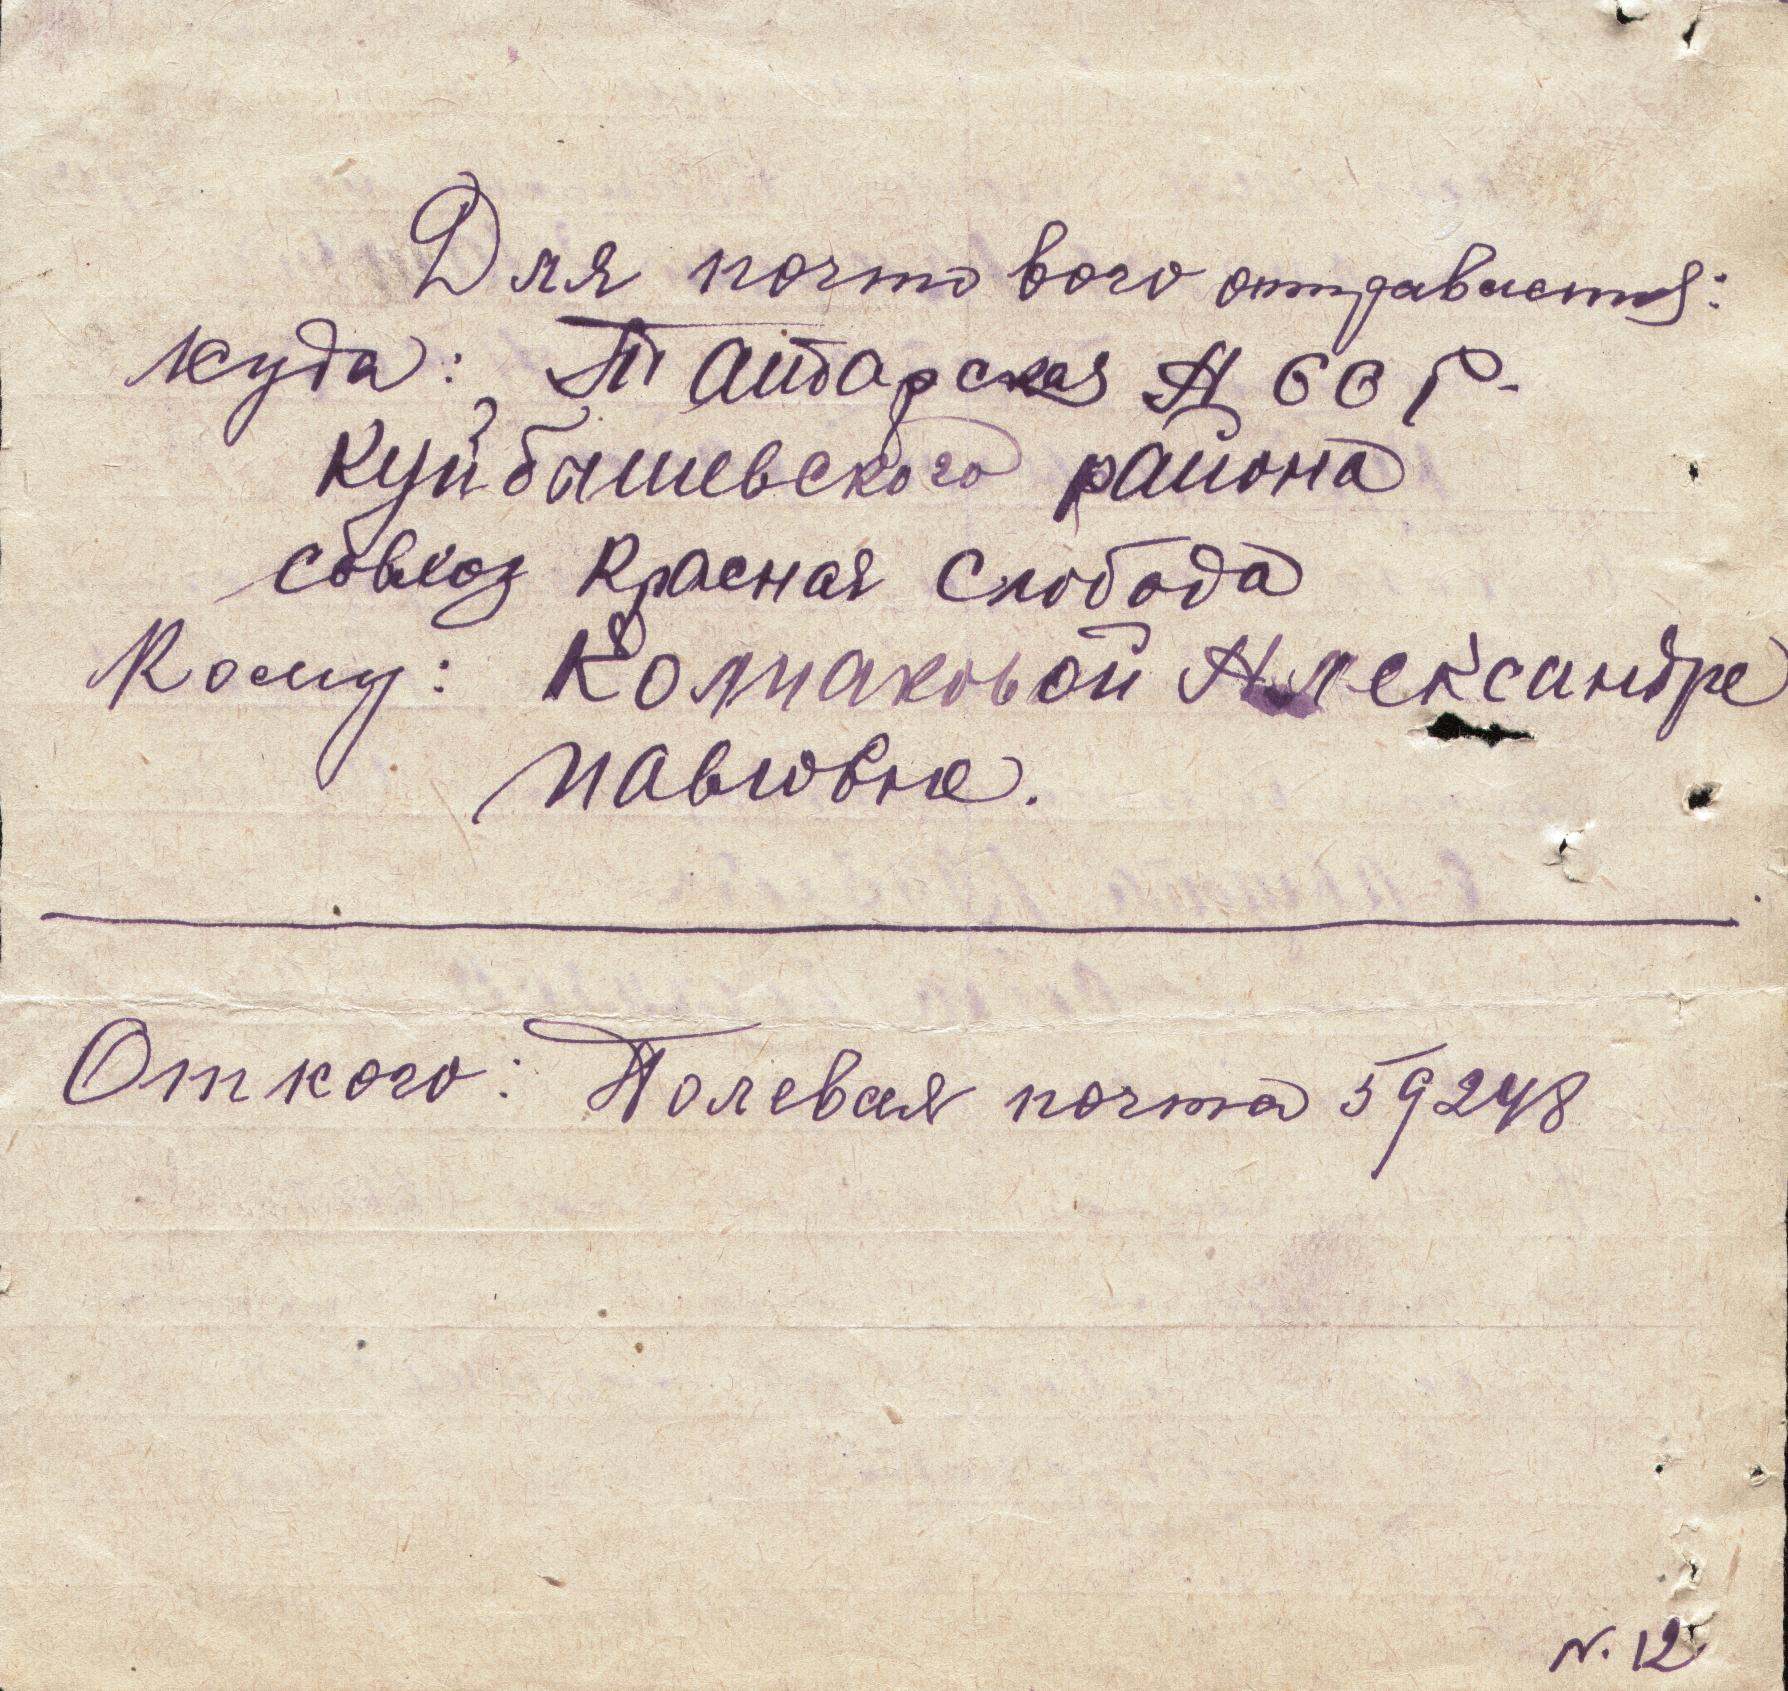 Для почтового отправления:
куда: Татарская А ССР.
Куйбышевского района
совхоз Красная Слобода
Кому: Колпаковой Александре
Павловне.
От кого: Полевая почта 59248
N. 12